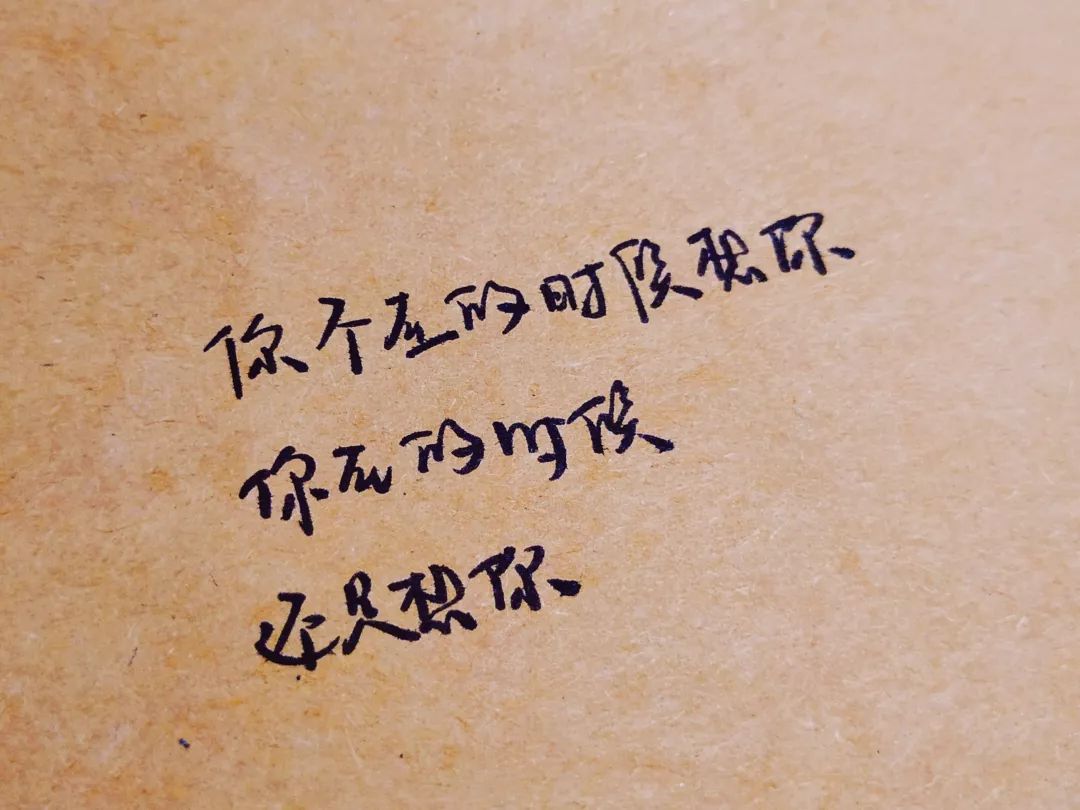 你不在的时候想你
你在的时候
还是想你